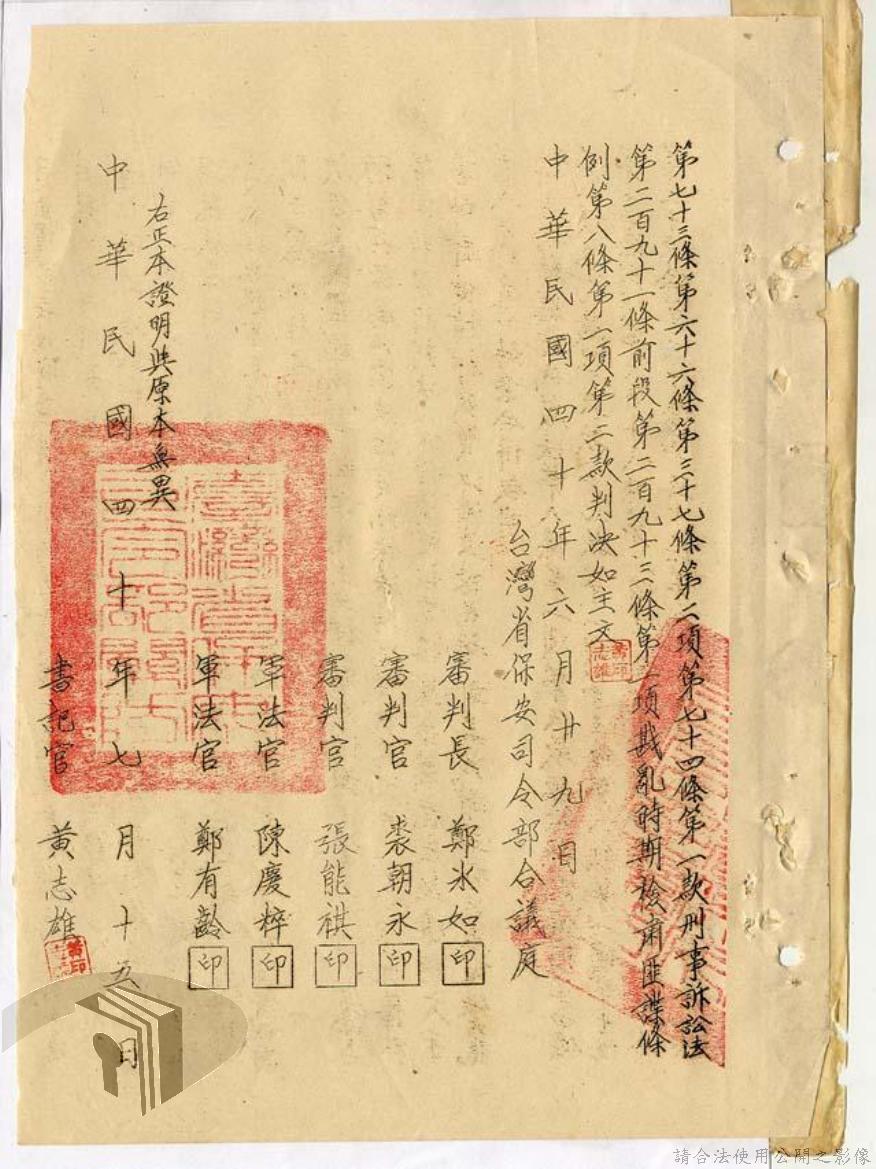 第七十三條第六十六條第三十七條第二項第七十四條第一款刑事訴訟法
第二百九十一條前段第二百九十三條第一項戡亂時期檢肅匪諜條
例第八條第一項第二款判決如主文
中華民國四十年六月廿九日
台灣省保安司令部合議庭
審判長 鄭氷如 印
審判官 裘朝永 印
審判官 張能祺 印
軍法官 陳慶粹 印
軍法官 鄭有齡 印
右正本證明與原本無異
中華民國四十年七月十五日
書記官 黃志雄
請合法使用公開之影像